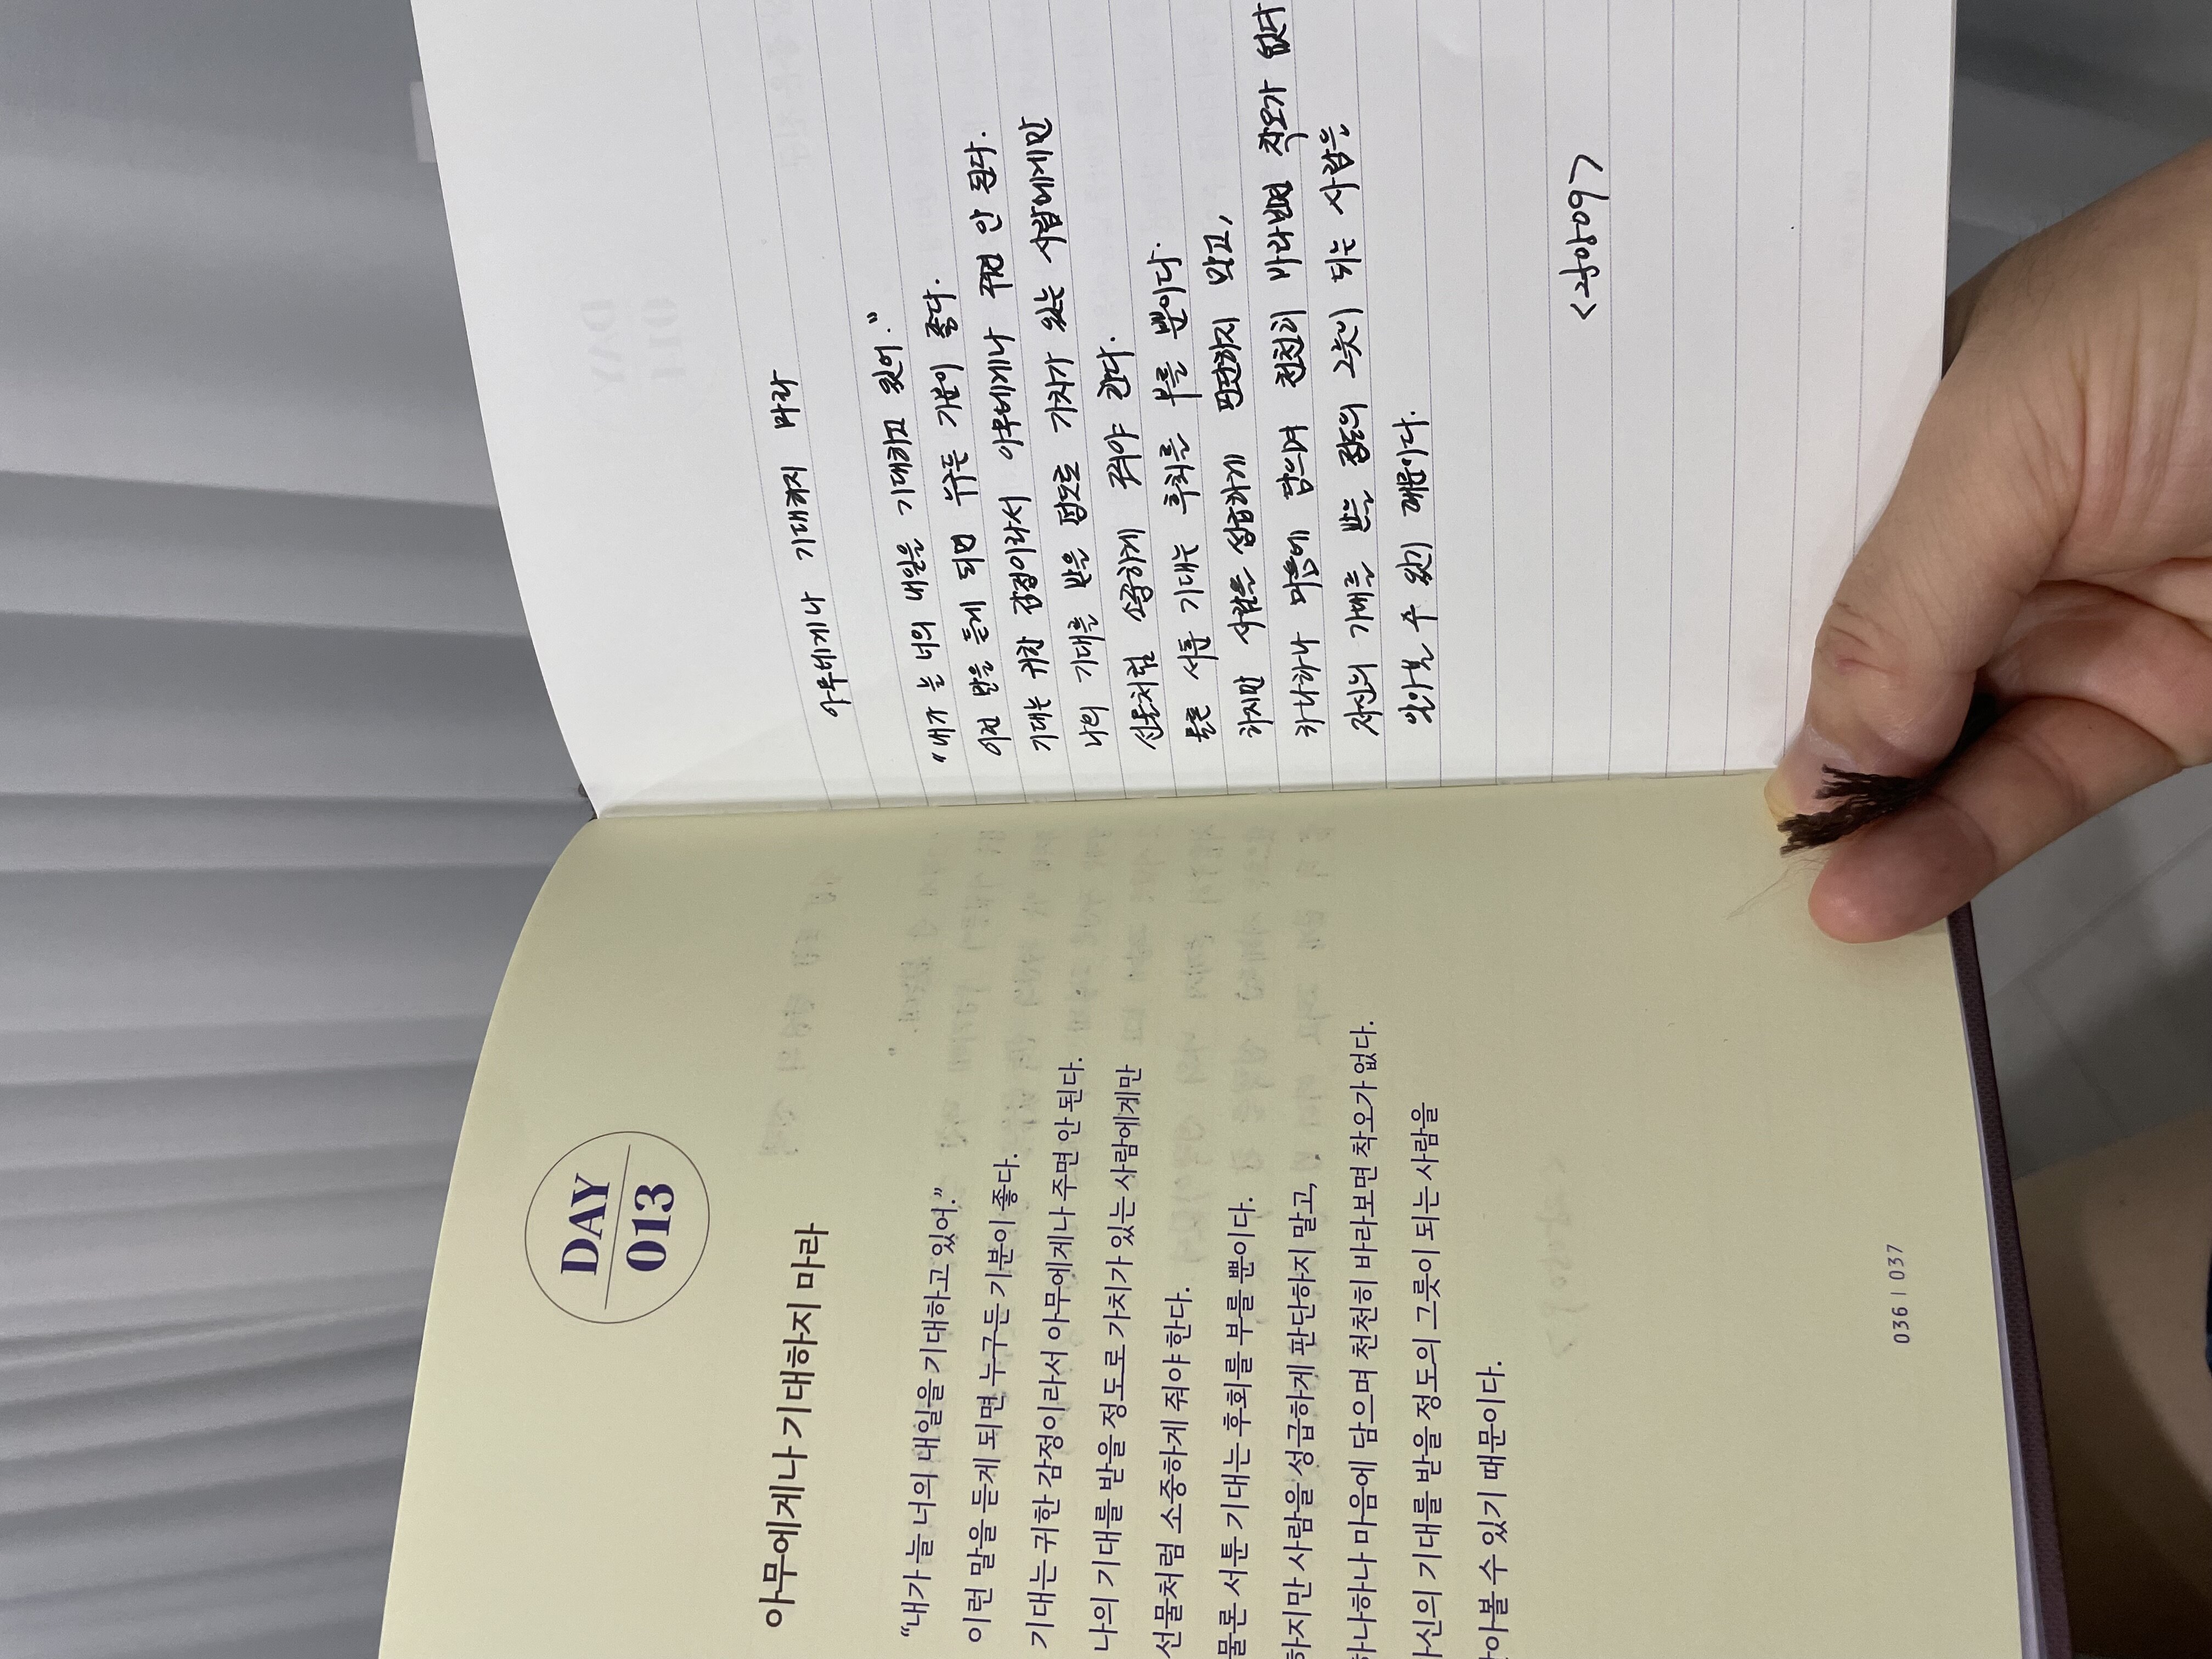 DAY
013
아무에게나 기대하지 마라
“내가 늘 너의 내일을 기대하고 있어.”
이런 말을 듣게 되면 누구든 기분이 좋다.
기대는 귀한 감정이라서 아무에게나 주면 안 된다.
나의 기대를 받을 정도로 가치가 있는 사람에게만
선물처럼 소중하게 줘야 한다.
물론 서툰 기대는 후회를 부를 뿐이다.
하지만 사람을 성급하게 판단하지 말고,
하나하나 마음에 담으며 천천히 바라보면 착오가 없다.
자신의 기대를 받을 정도의 그릇이 되는 사람을
알아볼 수 있기 때문이다.
036 | 037
아무에게나 기대하지 마라
"내가 늘 너의 내일을 기대하고 있어."
이런 말을 듣게 되면 누구든 기분이 좋다.
기대는 귀한 감정이라서 아무에게나 주면 안 된다.
나의 기대를 받을 정도로 가치가 있는 사람에게만
선물처럼 소중하게 줘야 한다.
물론 서툰 기대는 후회를 부를 뿐이다.
하지만 사람을 성급하게 판단하지 말고,
하나하나 마음에 담으며 천천히 바라보면 착오가 없다
자신의 기대를 받을 정도의 그릇이 되는 사람을
알아볼 수 있기 때문이다.